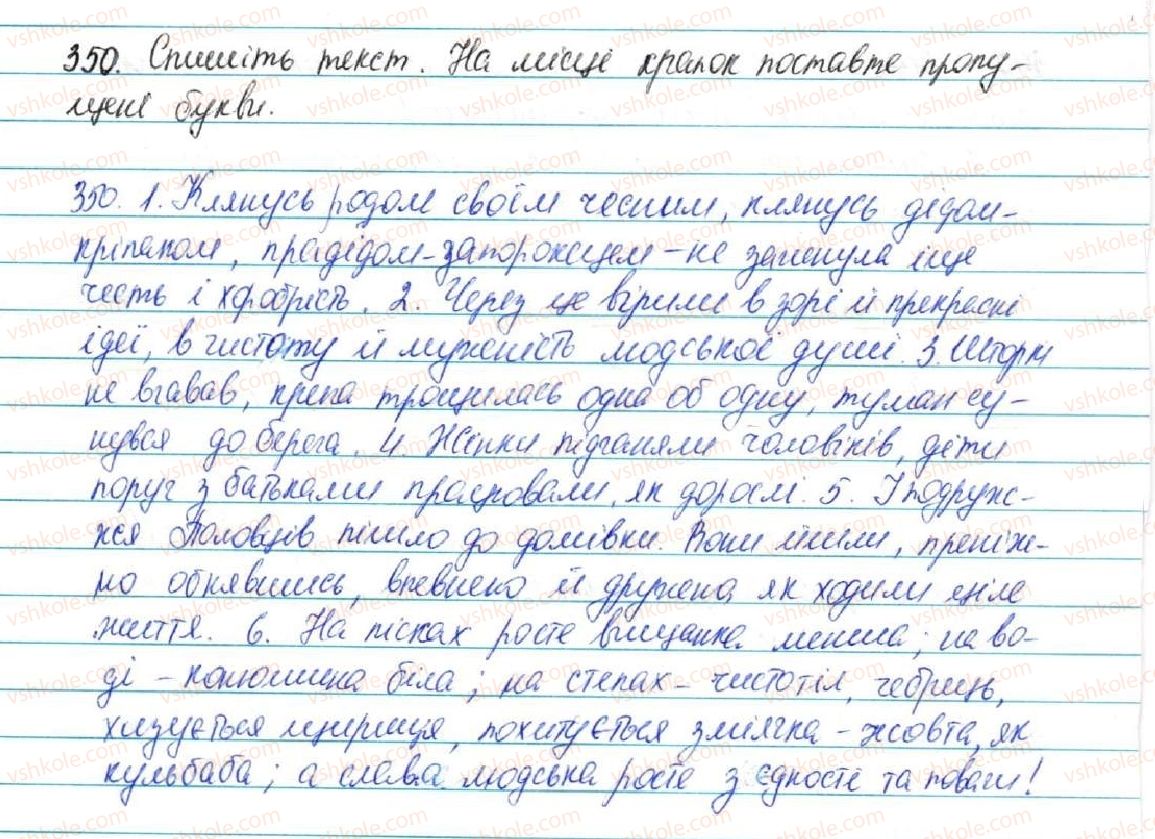 350. Спишіть текст. На місці крапок поставте пропу-
щені букви.
350. 1. Клянусь родом своїм чесним, клянусь дідом-
кріпаком, прадідом-запорожцем – не загинула іще
честь і хоробрість. 2. Через це вірили в зорі й прекрасні
ідеї, в чистоту й мужність людської душі. 3. Шторм
не вгавав, крига трощилась одна об одну, туман су-
нувся до берега. 4. Жінки підганяли чоловіків, діти
поруч з батьками працювали, як дорослі. 5. І подруж-
жя Половців пішло до домівки. Вони йшли, преніж-
но обнявшись, впевнено й дружно, як ходили ціле
життя. 6. На пісках росте менша; на во-
ді – конюшина біла; на степах – чистотіл, чебрець,
хизується щириця, похитується змілчка – жовта, як
кульбаба; а слава людська росте з єдності та поваги!